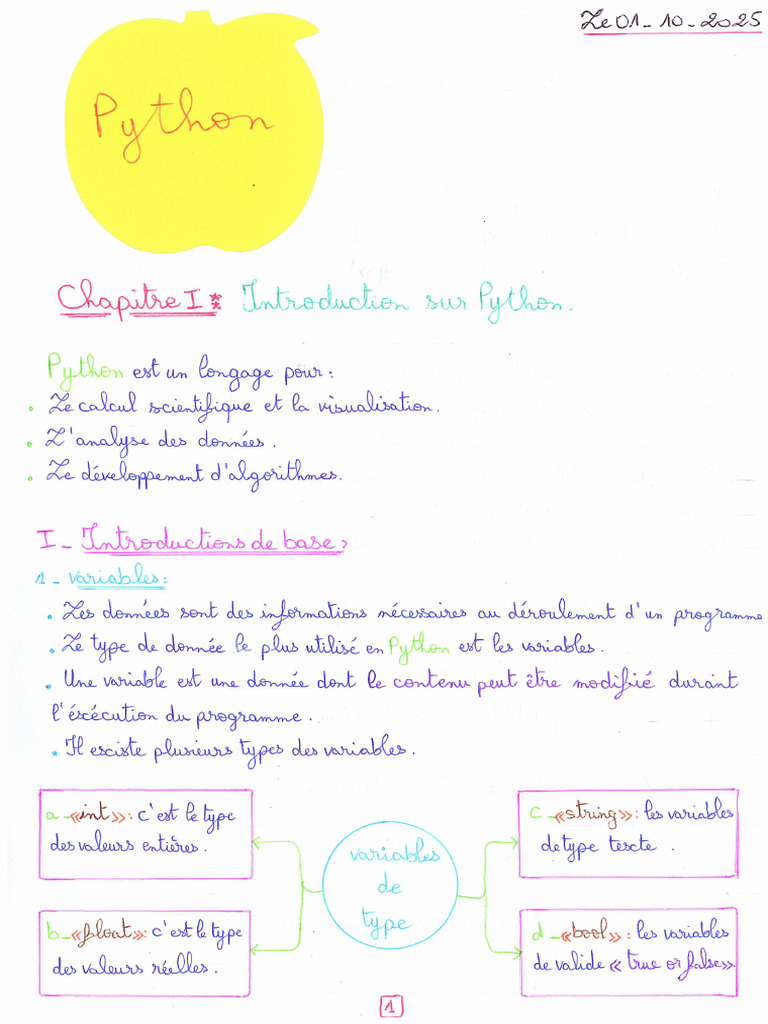 Le 01-10-2025
Python
Chapitre I : Introduction sur Python.
Python est un longage pour :
• Le calcul scientifique et la visualisation.
• L'analyse des données.
• Le développement d'algorithmes.
I - Introductions de base :
1 - variables :
• Les données sont des informations nécessaires au déroulement d'un programme
• Le type de donnée le plus utilisé en Python est les variables.
• Une variable est une donnée dont le contenu peut être modifié durant
l'éxécution du programme.
• Il esciste plusieurs types des variables.
a - «int» : c'est le type
des valeurs entières.
b - «float» : c'est le type
des valeurs réelles.
variables
de
type
c - «string» : les variables
de type tescte.
d - «bool» : les variables
de valide « true or false».
1